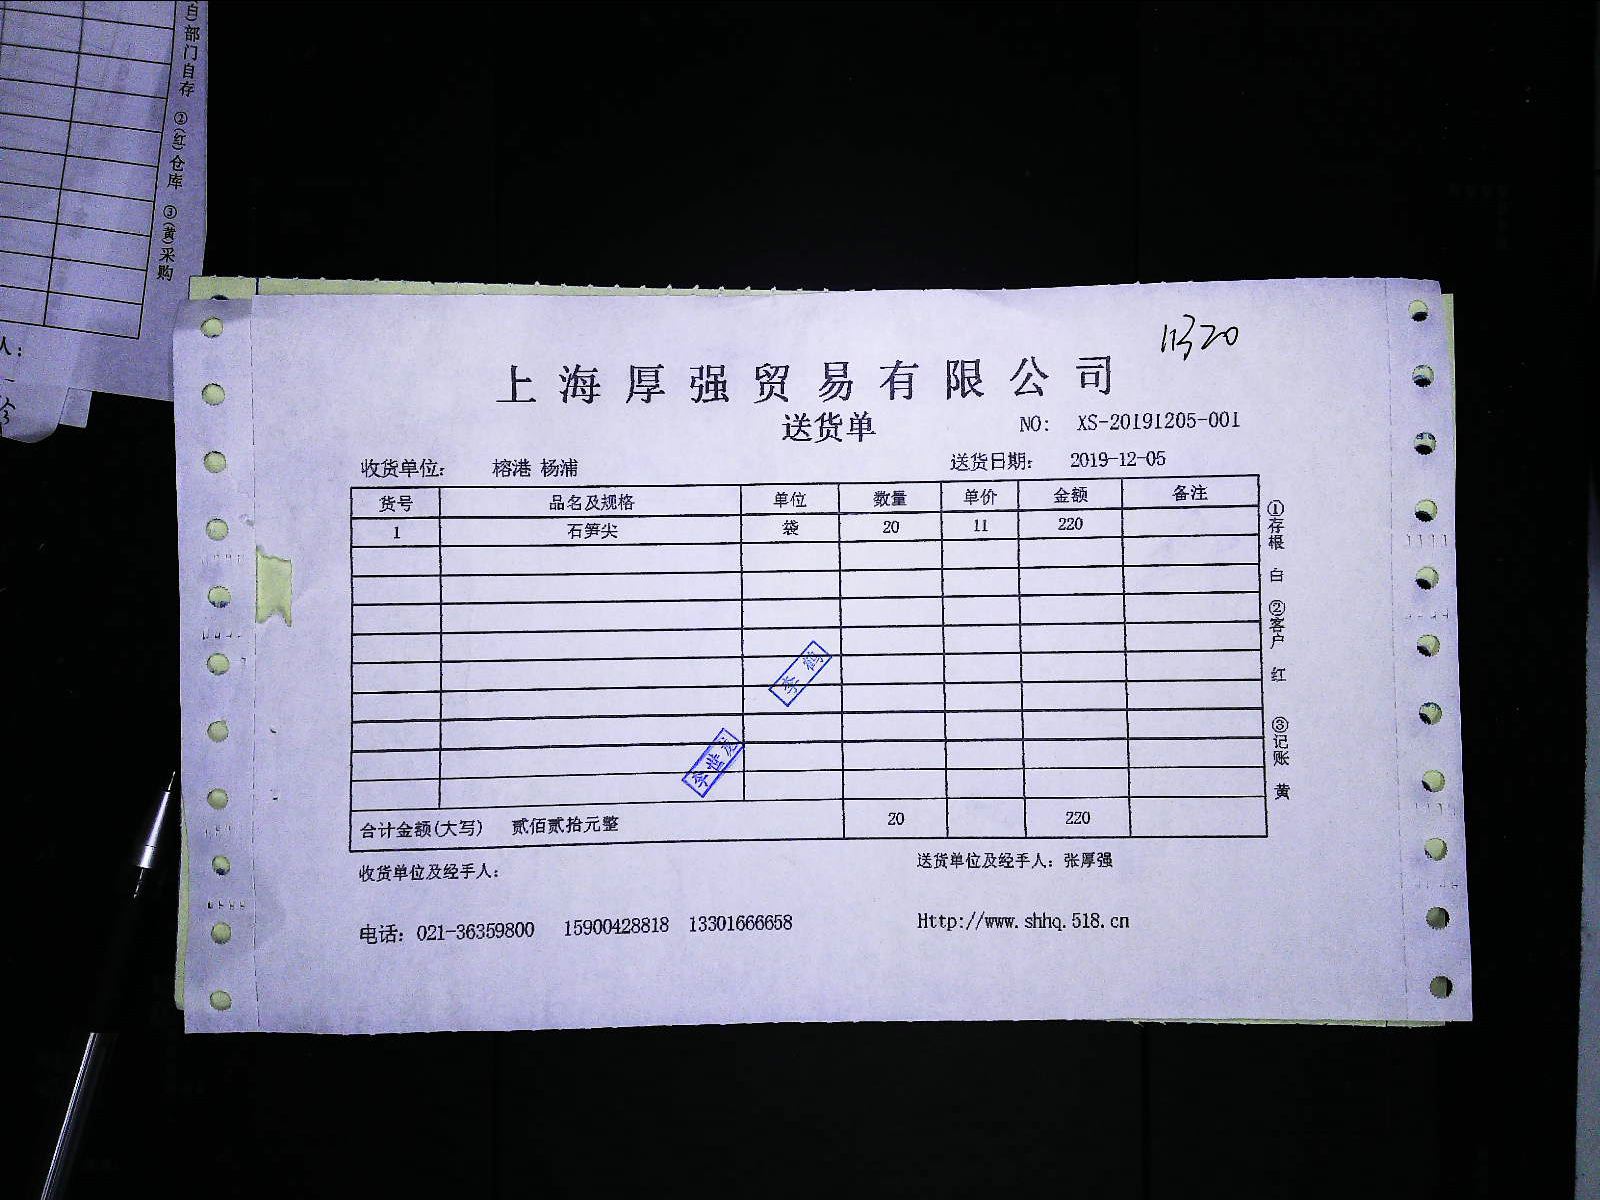 自)部门自存 ②(红)仓库 ③(黄)采购
人:
11320
上海厚强贸易有限公司
送货单
NO: XS-20191205-001
收货单位: 榕港 杨浦 送货日期: 2019-12-05
货号 品名及规格 单位 数量 单价 金额 备注
1 石笋尖 袋 20 11 220
①存根 白 ②客户 红 ③记账 黄
李鹤
合计金额(大写) 贰佰贰拾元整 20 220
收货单位及经手人: 送货单位及经手人: 张厚强
电话: 021-36359800 15900428818 13301666658 Http://www.shhq.518.cn